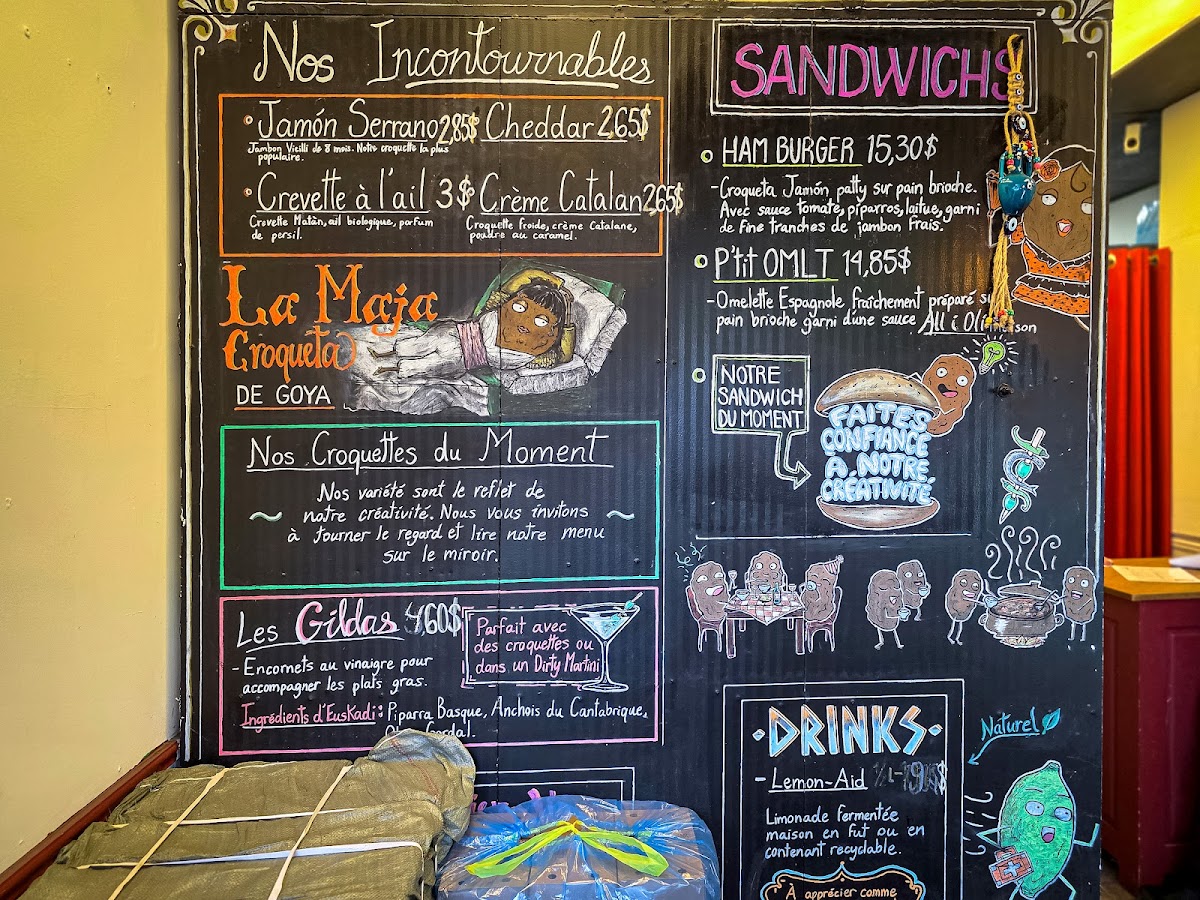 Nos Incontournables
Jamón Serrano 2,85$
Jambon Vieilli de 8 mois. Notre croquette la plus
populaire.
Cheddar 2,65$
Crevette à l'ail 3$
Crevette Matan, ail biologique, parfum
de persil.
Crème Catalan 2,65$
Croquette froide, crème Catalane,
poudre au caramel.
La Maja
Croqueta
DE GOYA
Nos Croquettes du Moment
Nos variété sont le reflet de
notre créativité. Nous vous invitons
à tourner le regard et lire notre menu
sur le miroir.
Les Gildas 4,60$
- Encornets au vinaigre pour
accompagner les plats gras.
Parfait avec
des croquettes ou
dans un Dirty Martini
Ingrédients d'Euskadi: Piparra Basque, Anchois du Cantabrique,
SANDWICHS
HAM BURGER 15,30$
- Croqueta Jamón patty sur pain brioche.
Avec sauce tomate, piparros, laitue, garni
de fine tranches de jambon frais.
P'tit OMLT 14,85$
- Omelette Espagnole fraîchement préparé
pain brioche garni d'une sauce All i Oli
NOTRE
SANDWICH
DU MOMENT
FAITES
CONFIANCE
À NOTRE
CRÉATIVITÉ
DRINKS
- Lemon-Aid
Limonade fermentée
maison en fut ou en
contenant recyclable.
À apprécier comme
Naturel